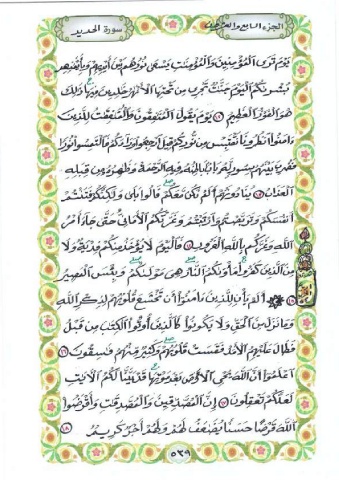 الجزء السابع والعشرون
سورة الحديد
يوم ترى المؤمنين والمؤمنت يسعى نورهم بين أيديهم وبأيمنهم
بشرىكم اليوم جنت تجرى من تحتها الأنهر خلدين فيها ذلك
هو الفوز العظيم ١٢ يوم يقول المنفقون والمنفقت للذين
ءامنوا انظرونا نقتبس من نوركم قيل ارجعوا وراءكم فالتمسوا نورا
فضرب بينهم بسور له باب باطنه فيه الرحمة وظهره من قبله
العذاب ١٣ ينادونهم ألم نكن معكم قالوا بلى ولكنكم فتنتم
أنفسكم وتربصتم وارتبتم وغرتكم الأمانى حتى جاء أمر
الله وغركم بالله الغرور ١٤ فاليوم لا يؤخذ منكم فدية ولا
من الذين كفروا مأوىكم النار هى مولىكم وبئس المصير
١٥ ألم يأن للذين ءامنوا أن تخشع قلوبهم لذكر الله
وما نزل من الحق ولا يكونوا كالذين أوتوا الكتب من قبل
فطال عليهم الأمد فقست قلوبهم وكثير منهم فسقون ١٦
اعلموا أن الله يحى الأرض بعد موتها قد بينا لكم الأيت
لعلكم تعقلون ١٧ إن المصدقين والمصدقت وأقرضوا
الله قرضا حسنا يضعف لهم ولهم أجر كريم ١٨
٥٣٩